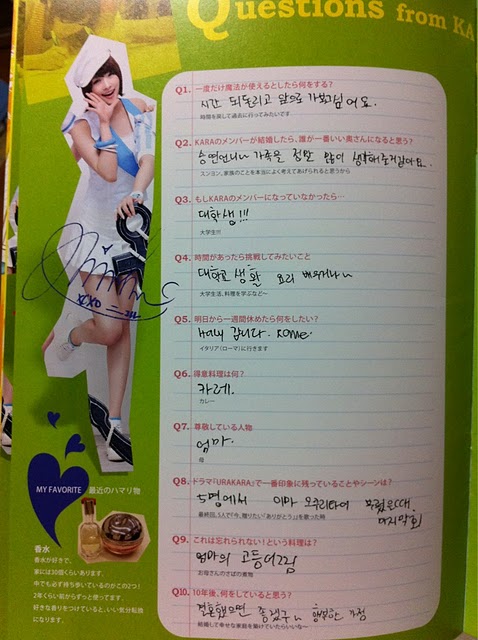 Questions from KA
Q1. 一度だけ魔法が使えるとしたら何をする?
시간 되돌리고 앞으로 가보고싶어요.
時間を戻して過去に行ってみたいです
Q2. KARAのメンバーが結婚したら、誰が一番いい奥さんになると思う?
승연언니~ 가족을 정말 많이 생각해줄거같아요.
スンヨン。家族のことを本当によく考えてあげられると思うから
Q3. もしKARAのメンバーになっていなかったら…
대학생!!!
大学生!!!
Q4. 時間があったら挑戦してみたいこと
대학교 생활 요리 배우거나~
大学生活、料理を学ぶなど~
Q5. 明日から一週間休めたら何をしたい?
Italy 갑니다. Rome.
イタリア(ローマ)に行きます
Q6. 得意料理は何?
카레.
カレー
Q7. 尊敬している人物
엄마.
母
Q8. ドラマ『URAKARA』で一番印象に残っていることやシーンは?
5명에서 이마 오쿠리타이 불렀을때.
마지막회
最終回、5人で「今、贈りたい『ありがとう』」を歌った時
Q9. これは忘れられない!という料理は?
엄마의 고등어조림
お母さんのさばの煮物
Q10. 10年後、何をしていると思う?
결혼했으면 좋겠구~ 행복한 가정
結婚して幸せな家庭を築けていたらいいな~
MY FAVORITE 最近のハマり物
香水
香水が好きで、
家には30個くらいあります。
中でも必ず持ち歩いているのがこの2つ!
2年くらい前からずっと使ってます。
好きな香りをつけていると、いい気分転換
になります。